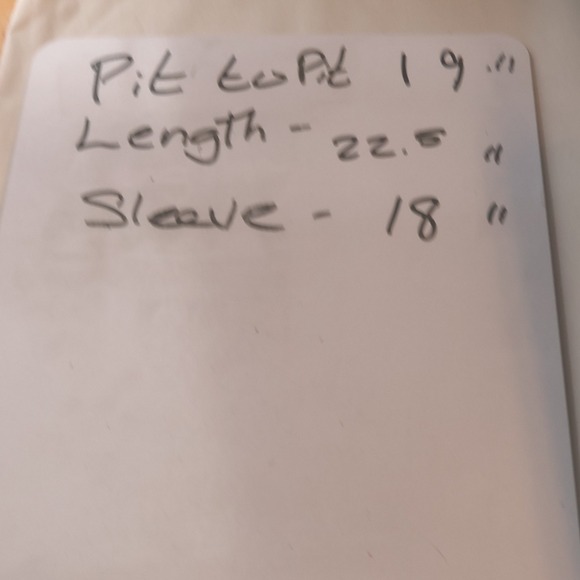 Pit to Pit 19"
Length - 22.5 "
Sleeve - 18 "